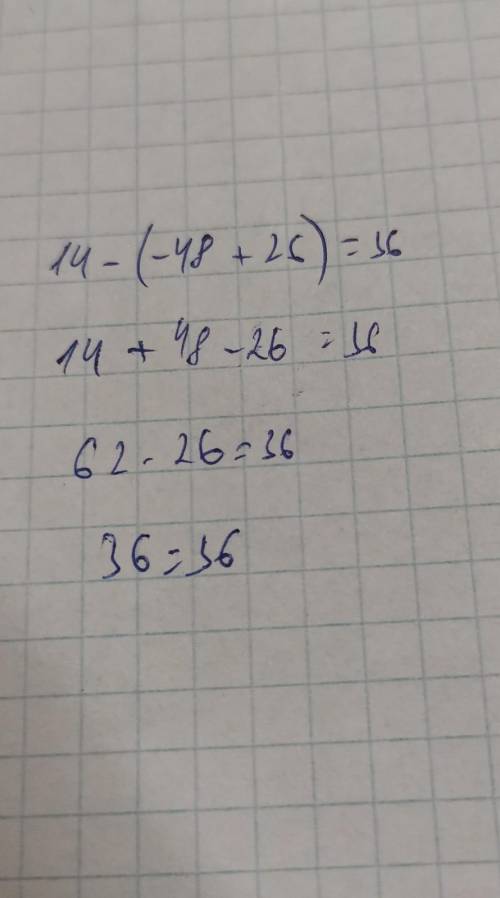 14 - (-48 + 26) = 36
14 + 48 - 26 = 36
62 - 26 = 36
36 = 36